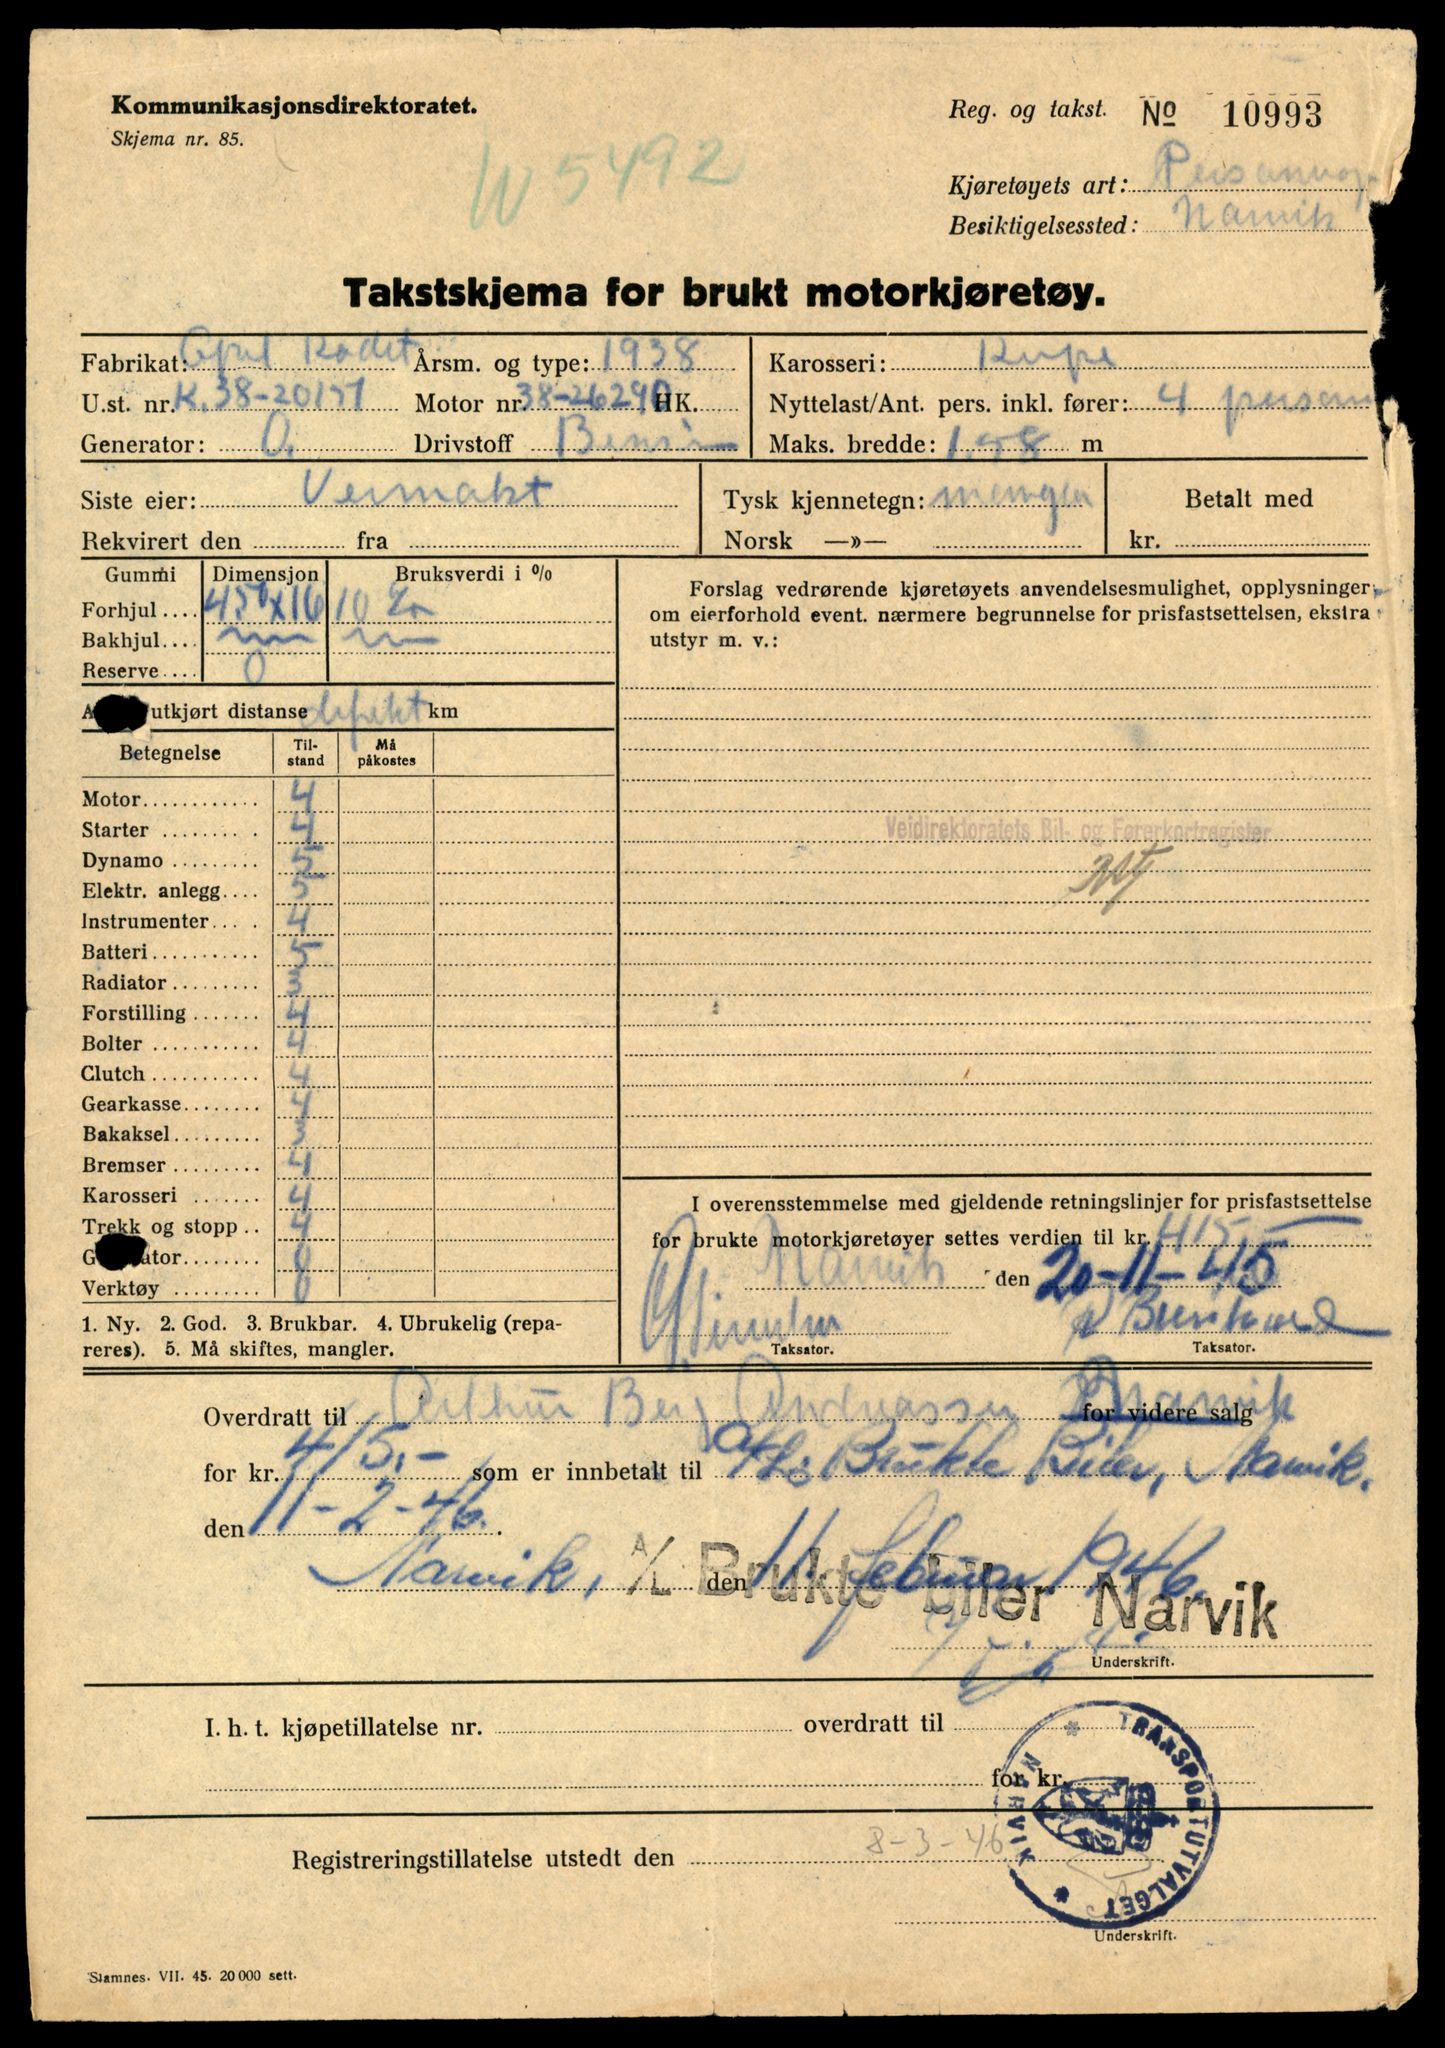 Kommunikasjonsdirektoratet.
Skjema nr. 85.
W 5492
Reg. og takst. № 10993
Kjøretøyets art: Personvog
Besiktigelsessted: Narvik
Takstskjema for brukt motorkjøretøy.
Fabrikat: Opel Kadet Årsm. og type: 1938 Karosseri: Kupe
U.st. nr. K.38-20157 Motor nr. 38-26290 HK. Nyttelast/Ant. pers. inkl. fører: 4 person
Generator: 0 Drivstoff Bensin Maks. bredde: 1.58 m
Siste eier: Vermakt Tysk kjennetegn: mangler Betalt med
Rekvirert den fra Norsk —»— kr.
Gummi Dimensjon Bruksverdi i %
Forhjul .... 450x16 10
Bakhjul....
Reserve.... 0
Forslag vedrørende kjøretøyets anvendelsesmulighet, opplysninger
om eierforhold event. nærmere begrunnelse for prisfastsettelsen, ekstra
utstyr m. v.:
utkjørt distanse defekt km
Betegnelse Til-stand Må påkostes
Motor 4
Starter 4
Dynamo 5
Elektr. anlegg 5
Instrumenter 4
Batteri 5
Radiator 3
Forstilling 4
Bolter 4
Clutch 4
Gearkasse 4
Bakaksel 3
Bremser 4
Karosseri 4
Trekk og stopp 4
G ator 0
Verktøy 0
1. Ny. 2. God. 3. Brukbar. 4. Ubrukelig (repa-
reres). 5. Må skiftes, mangler.
Veidirektoratets Bil- og Førerkortregister
I overensstemmelse med gjeldende retningslinjer for prisfastsettelse
for brukte motorkjøretøyer settes verdien til kr. 415,-
Narvik den 20-11-45
Taksator. Taksator.
Overdratt til Arthur Berg Andreassen Narvik for videre salg
for kr. 415,- som er innbetalt til A/L Brukte Biler, Narvik.
den 11-2-46.
Narvik, den 11 februar 1946.
A/L Brukte Biler Narvik
Underskrift.
I. h. t. kjøpetillatelse nr. overdratt til
for kr.
TRANSPORTUTVALGET * NARVIK *
Registreringstillatelse utstedt den 8-3-46
Underskrift.
Stamnes. VII. 45. 20 000 sett.